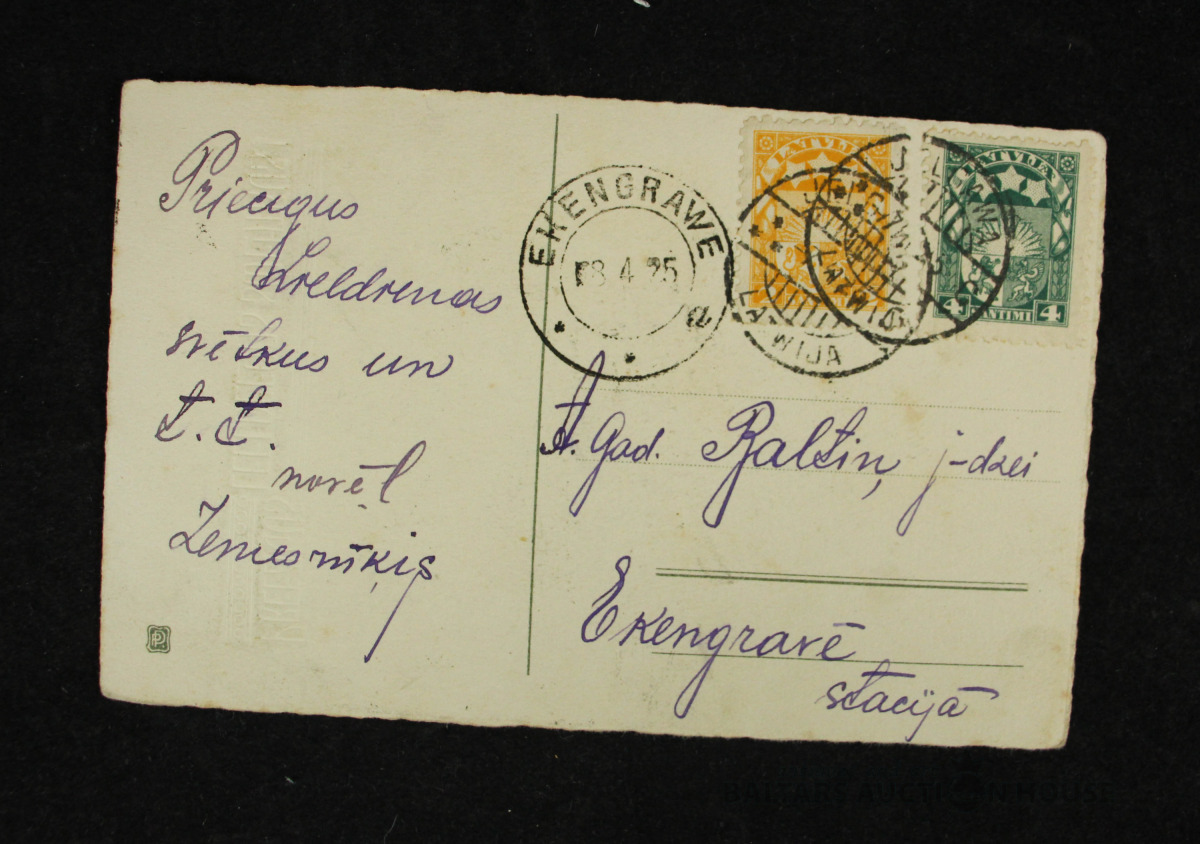 Priecīgus
Lieldienas
svētkus un
t. t.
novēl
Zemesrūķis
EKENGRAWE
8 4 25
a
LATVIJA
LATVIJA
4 SANTIMI 4
LATWIJA
LATWIJA
A. God. Baltiņ j-dzei
Ekengravē
stacijā
PR
BALTARS AUCTION HOUSE